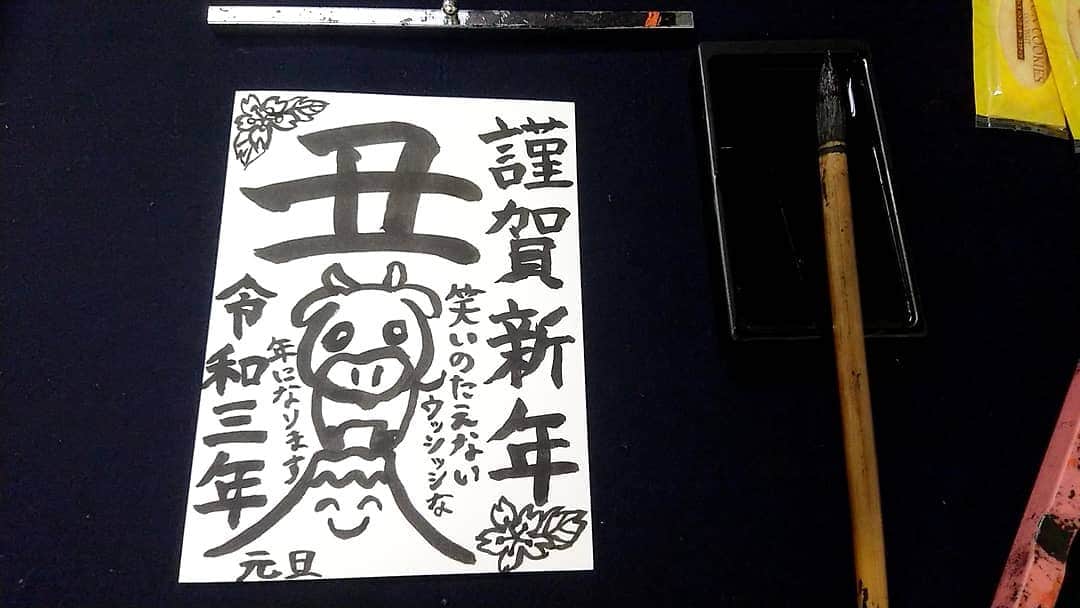 謹賀新年
丑
笑いのたえない
ウッシッシな
年になります
令和三年
元旦
COOKIES